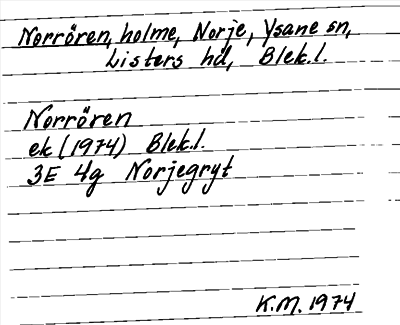 Norrören, holme, Norje, Ysane sn,
Listers hd, Blek.l.
Norrören
ek (1974) Blek.l.
3E 4g Norjegryt
K.M. 1974